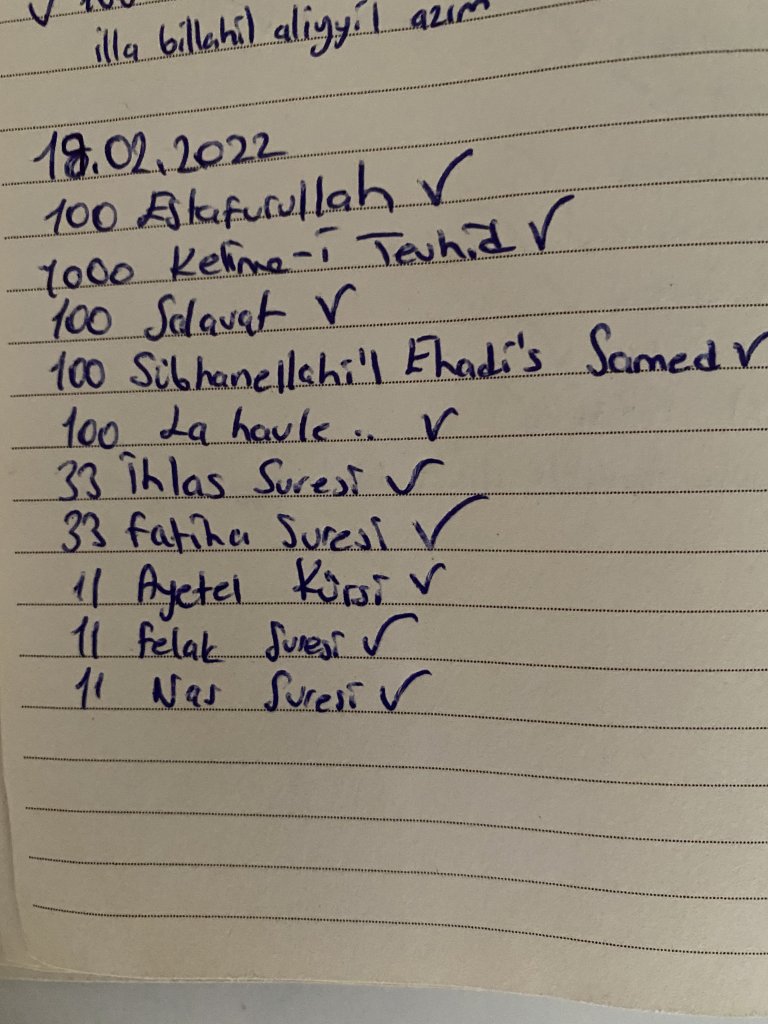 ✓ 100
illa billahil aliyyil azım
18.02.2022
100 Estafurullah ✓
1000 Kelime-i Tevhid ✓
100 Salavat ✓
100 Sübhanellahi'l Ehadi's Samed ✓
100 La havle .. ✓
33 İhlas Suresi ✓
33 fatiha Suresi ✓
11 Ayetel Kürsi ✓
11 felak Suresi ✓
11 Nas Suresi ✓